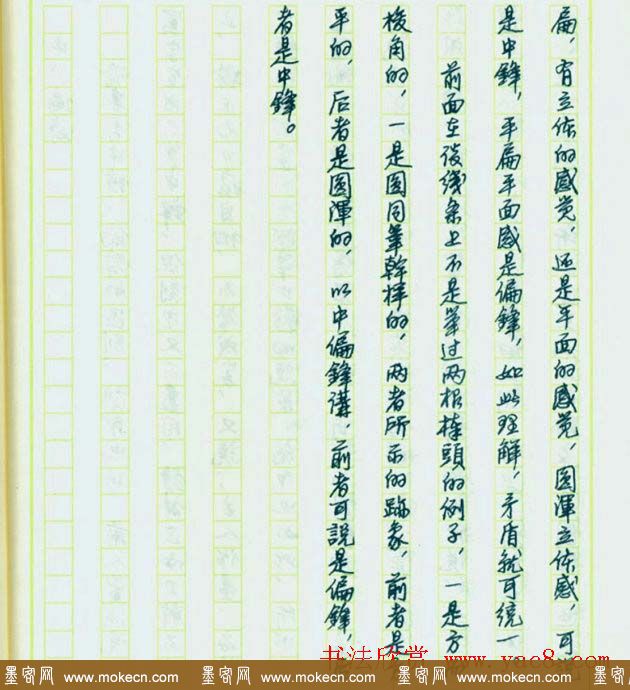 扁，有立体的感觉，还是平面的感觉，圆渾立体感，可说
是中鋒，平扁平面感是偏鋒，如此理解，矛盾就可统一
前面在谈线条上不是举过两根棒頭的例子，一是方
梭角的，一是圆同筆幹样的，两者所示的跡象，前者是
平的，后者是圆渾的，以中偏鋒講，前者可說是偏鋒，
者是中鋒。
书法欣赏 www.yac8.com
墨客网 www.mokecn.com 墨客网 www.mokecn.com 墨客网 www.mokecn.com